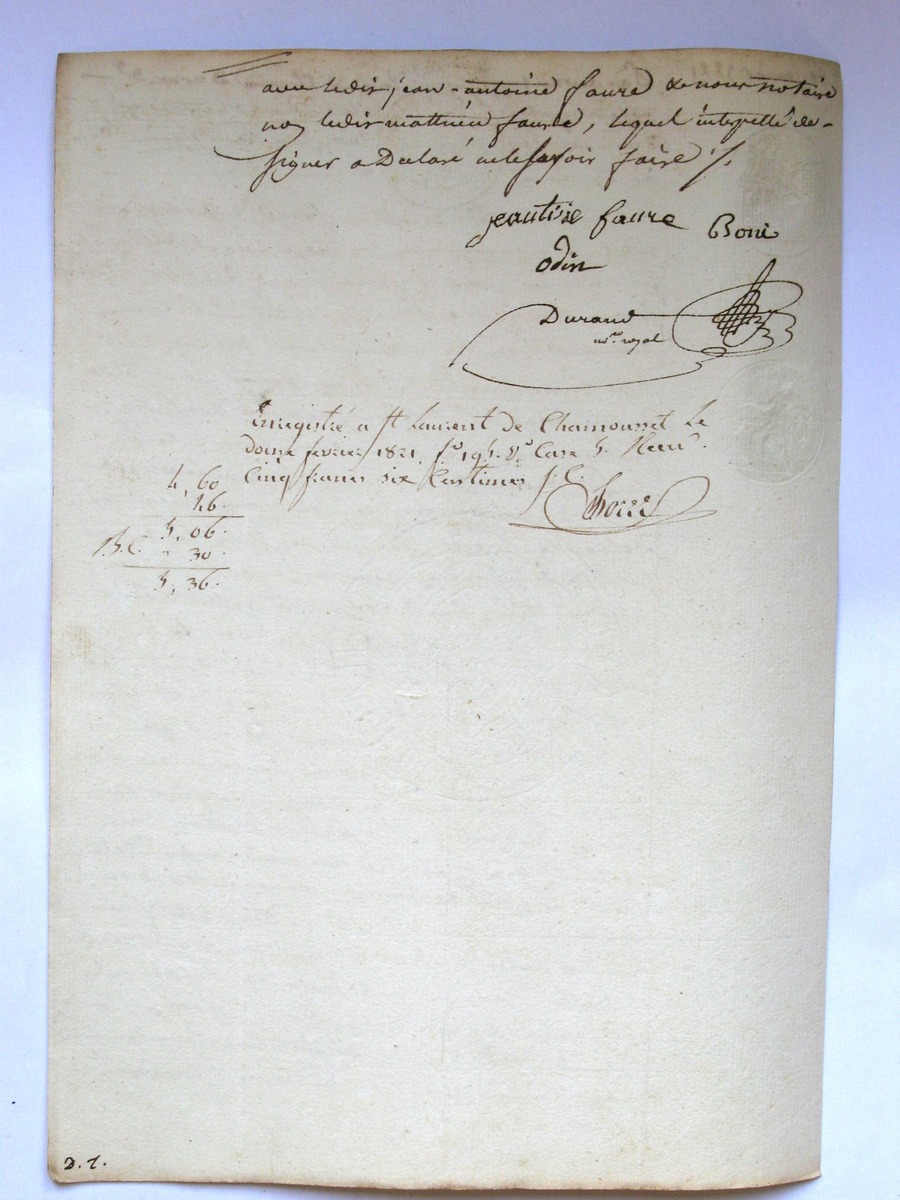 avec ledit jean-antoine faure & nous notaire
non ledit matthieu faure, lequel interpellé de-
signer a Declaré ne le savoir faire ./.
faure Boni
odin
Durand
n.re royal
Enregistré a St Laurent de Chamousset Le
douze fevrier 1821. f.o 195. v.o Case 5. Recu
Cinq francs six Centimes
4, 60
46.
5, 06.
" 30.
5, 36.